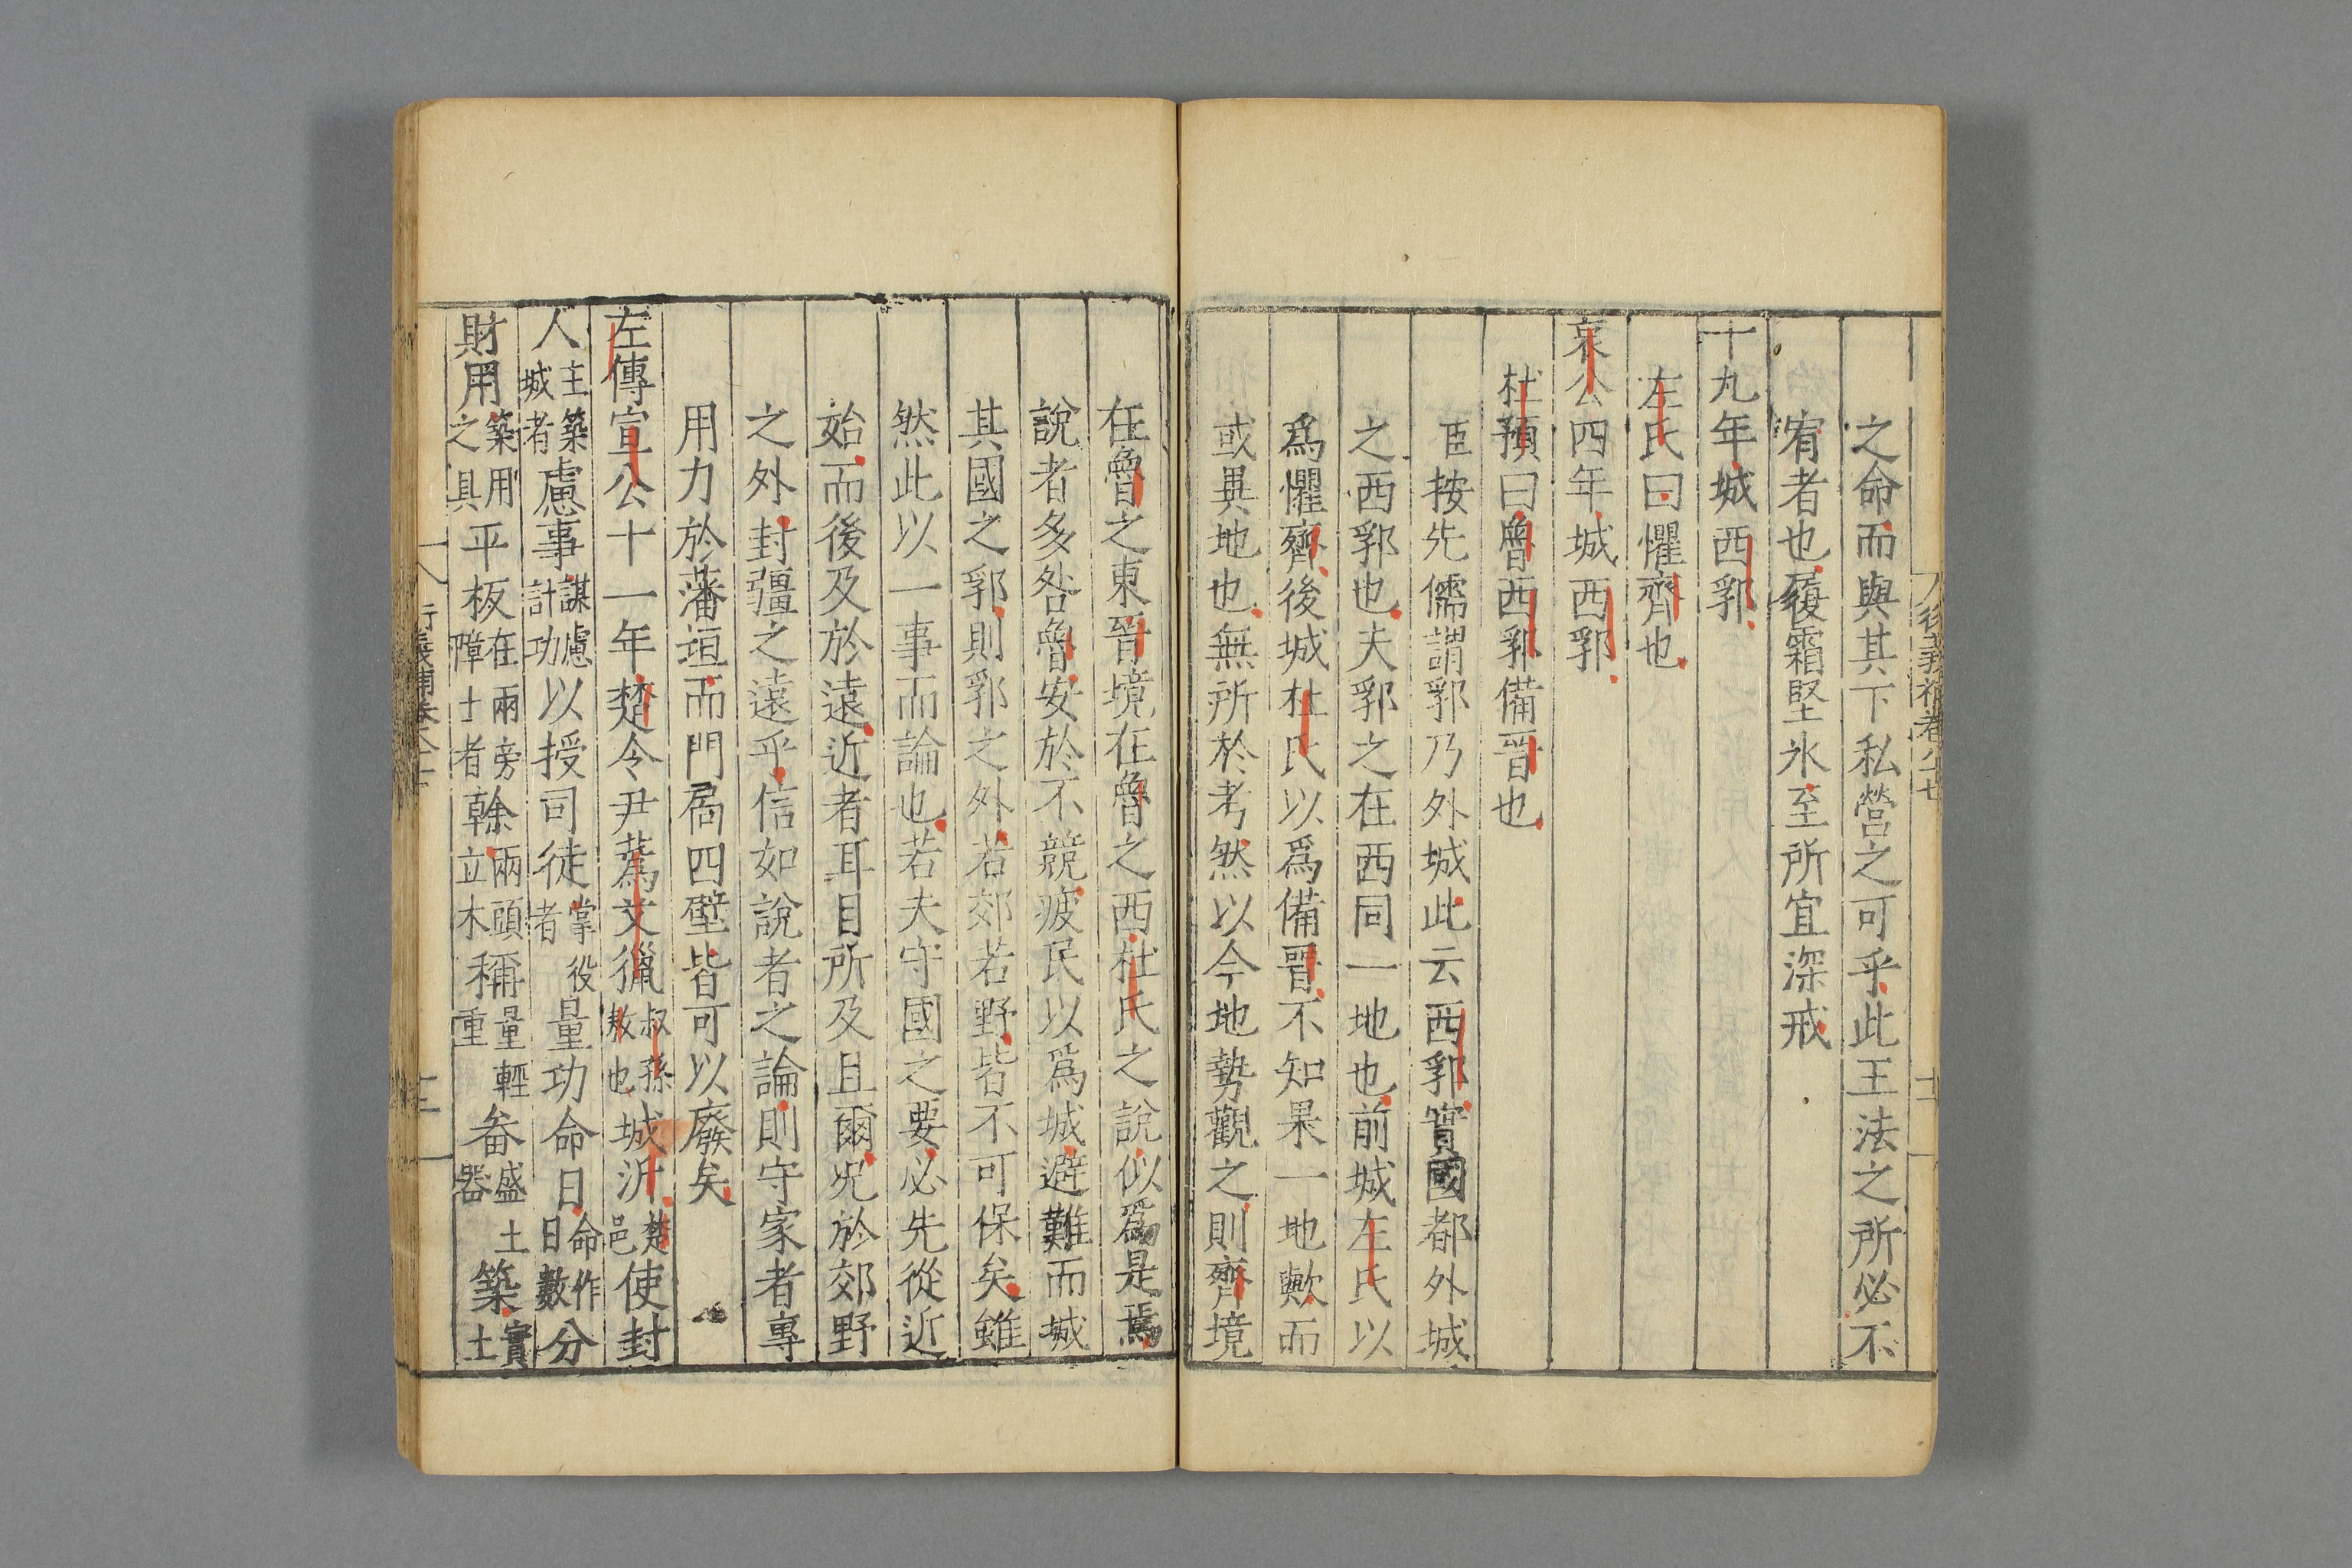 之命而與其下私營之可乎此王法之所必不
宥者也履霜堅氷至所宜深戒
十九年城西郛
左氏曰懼齊也
哀公四年城西郛
杜預曰魯西郛備晉也
臣按先儒謂郛乃外城此云西郛實國都外城
之西郛也夫郛之在西同一地也前城左氏以
爲懼齊後城杜氏以爲備晉不知果一地歟而
或異地也無所於考然以今地勢觀之則齊境
在魯之東晉境在魯之西杜氏之說似爲是焉
說者多咎魯安於不競疲民以爲城避難而城
其國之郛則郛之外若郊若野皆不可保矣雖
然此以一事而論也若夫守國之要必先從近
始而後及於遠近者耳目所及且爾況於郊野
之外封疆之遠乎信如說者之論則守家者專
用力於藩垣而門扃四壁皆可以廢矣
左傳宣公十一年楚令尹蒍艾獵叔孫敖也城沂楚邑使封
人主築城者慮事謀慮計功以授司徒掌役者量功命日命作日數分
財用築用之具平板在兩旁障土者榦兩頭立木稱量輕重畚盛土器築實土